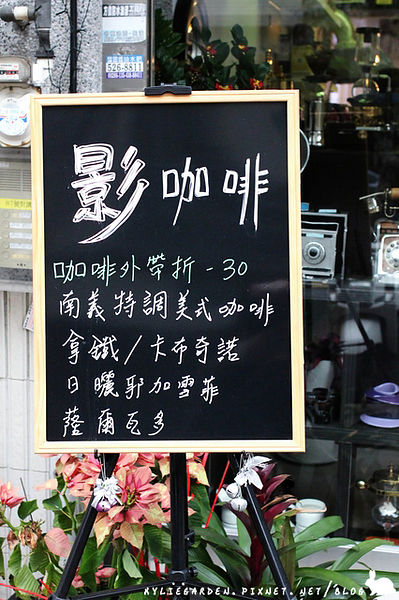 影咖啡
咖啡外帶折-30
南義特調美式咖啡
拿鐵/卡布奇諾
日曬耶加雪菲
薩爾瓦多
526-8811
KYLIEGARDEN.PIXNET.NET/BLOG